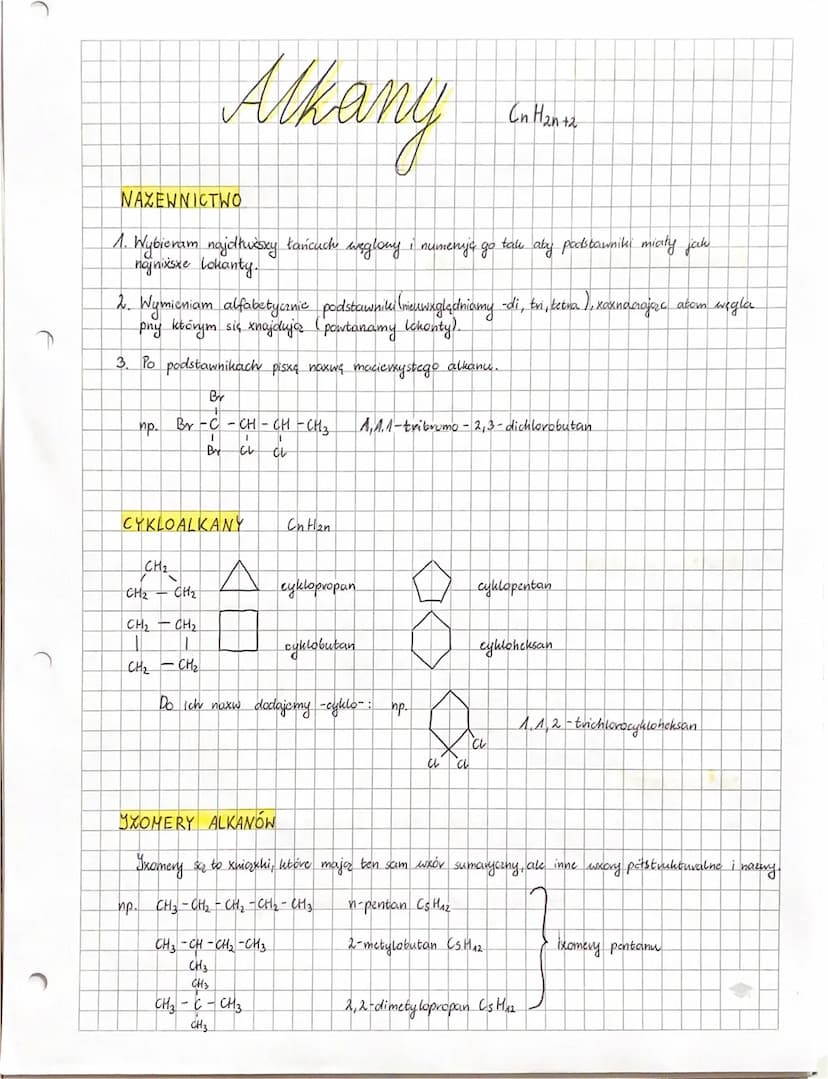 Alkany CnH2n+2
NAZEWNICTWO
1. Wybieram najdłuższy łańcuch węglowy i numeruję go tak aby podstawniki miały jak
najniższe lokanty.
2. Wymieniam alfabetycznie podstawniki (nieuwzględniamy -di, tri, tetra), zaznaczając atom węgla
przy którym się znajdują (powtarzamy lokanty).
3. Po podstawnikach piszę nazwę macierzystego alkanu.
Br
np. Br - C - CH - CH - CH3 1,1,1-tribromo-2,3-dichlorobutan
Br Cl Cl
CYKLOALKANY CnH2n
CH2
CH2 - CH2 cyklopropan cyklopentan
CH2 - CH2
cyklobutan cykloheksan
CH2 - CH2
Do ich nazw dodajemy -cyklo-: np.
1,1,2-trichlorocykloheksan
Cl
Cl Cl
IZOMERY ALKANÓW
Izomery są to związki, które mają ten sam wzór sumaryczny, ale inne wzory półstrukturalne i nazwy.
np. CH3 - CH2 - CH2 - CH2 - CH3 n-pentan C5H12
CH3 - CH - CH2 - CH3 2-metylobutan C5H12 izomery pentanu
CH3
CH3
CH3 - C - CH3 2,2-dimetylopropan C5H12
CH3